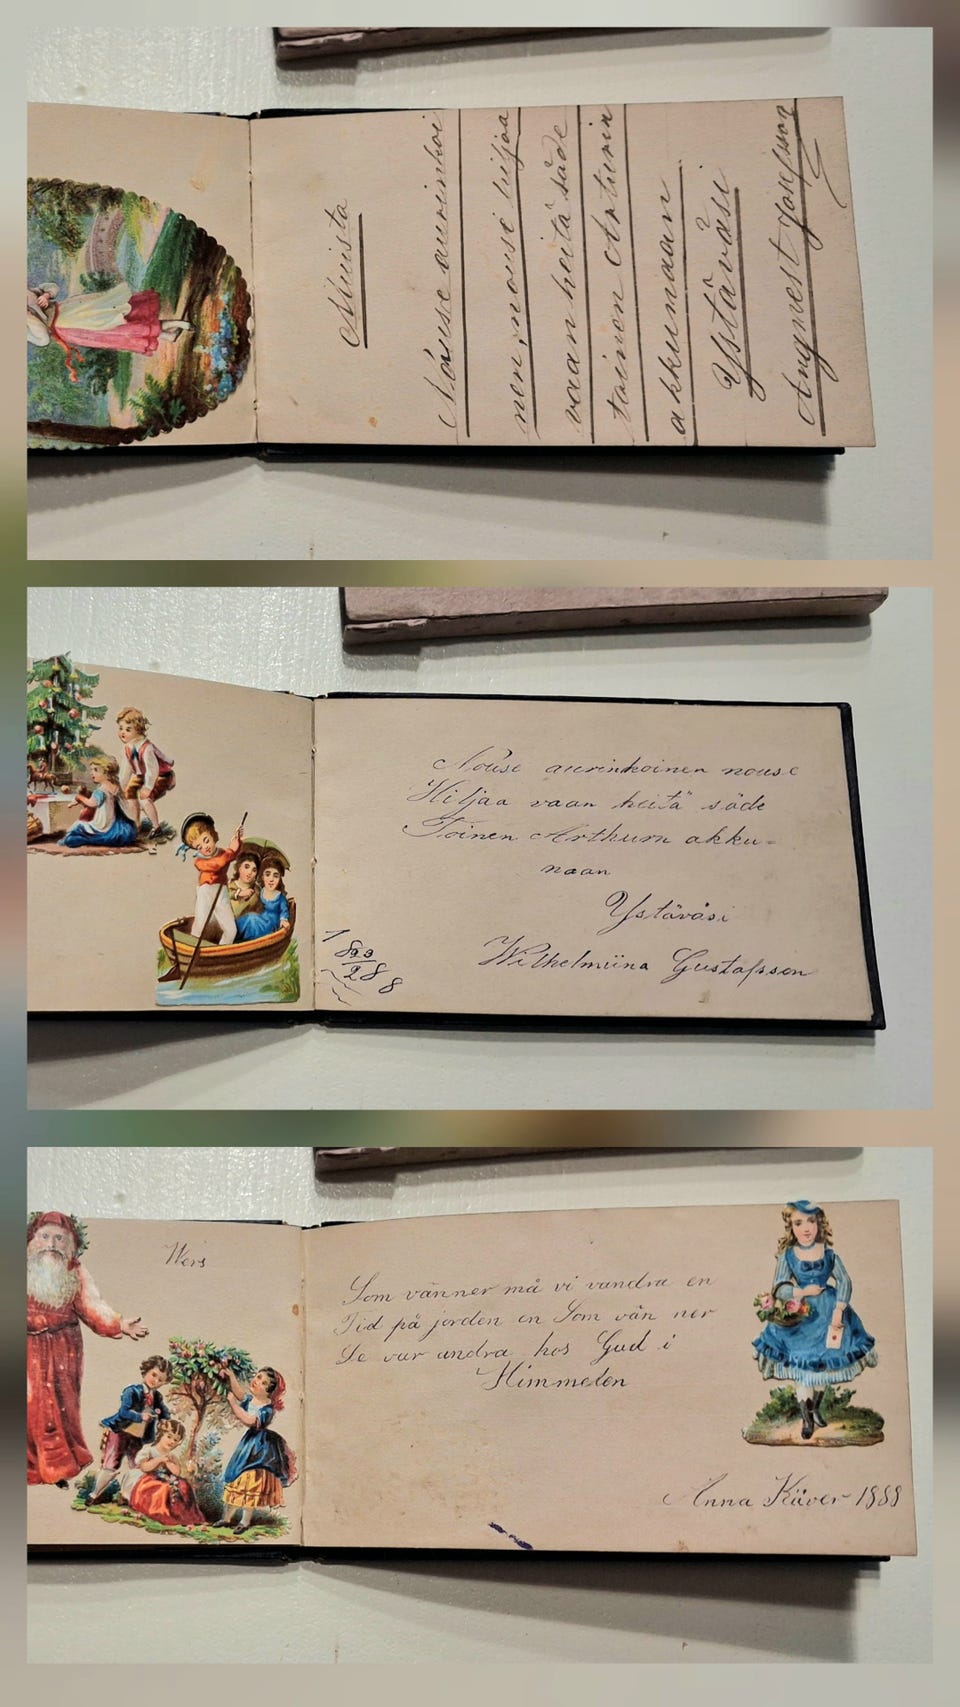 Muista
Nouse aurinkoi
nen, nouse hiljaa
vaan heitä säde
toinen Arturin
akkunaan
Ystäväsi
Josefsson
Nouse aurinkoinen nouse
Hiljaa vaan heitä säde
Toinen Arthurn akku=
naan
Ystäväsi
Wilhelmiina Gustafsson
Wers
Som vänner må vi vandra en
Tid på jorden en Som vän ner
Se var andra hos Gud i
Himmelen
Anna Küver 1888